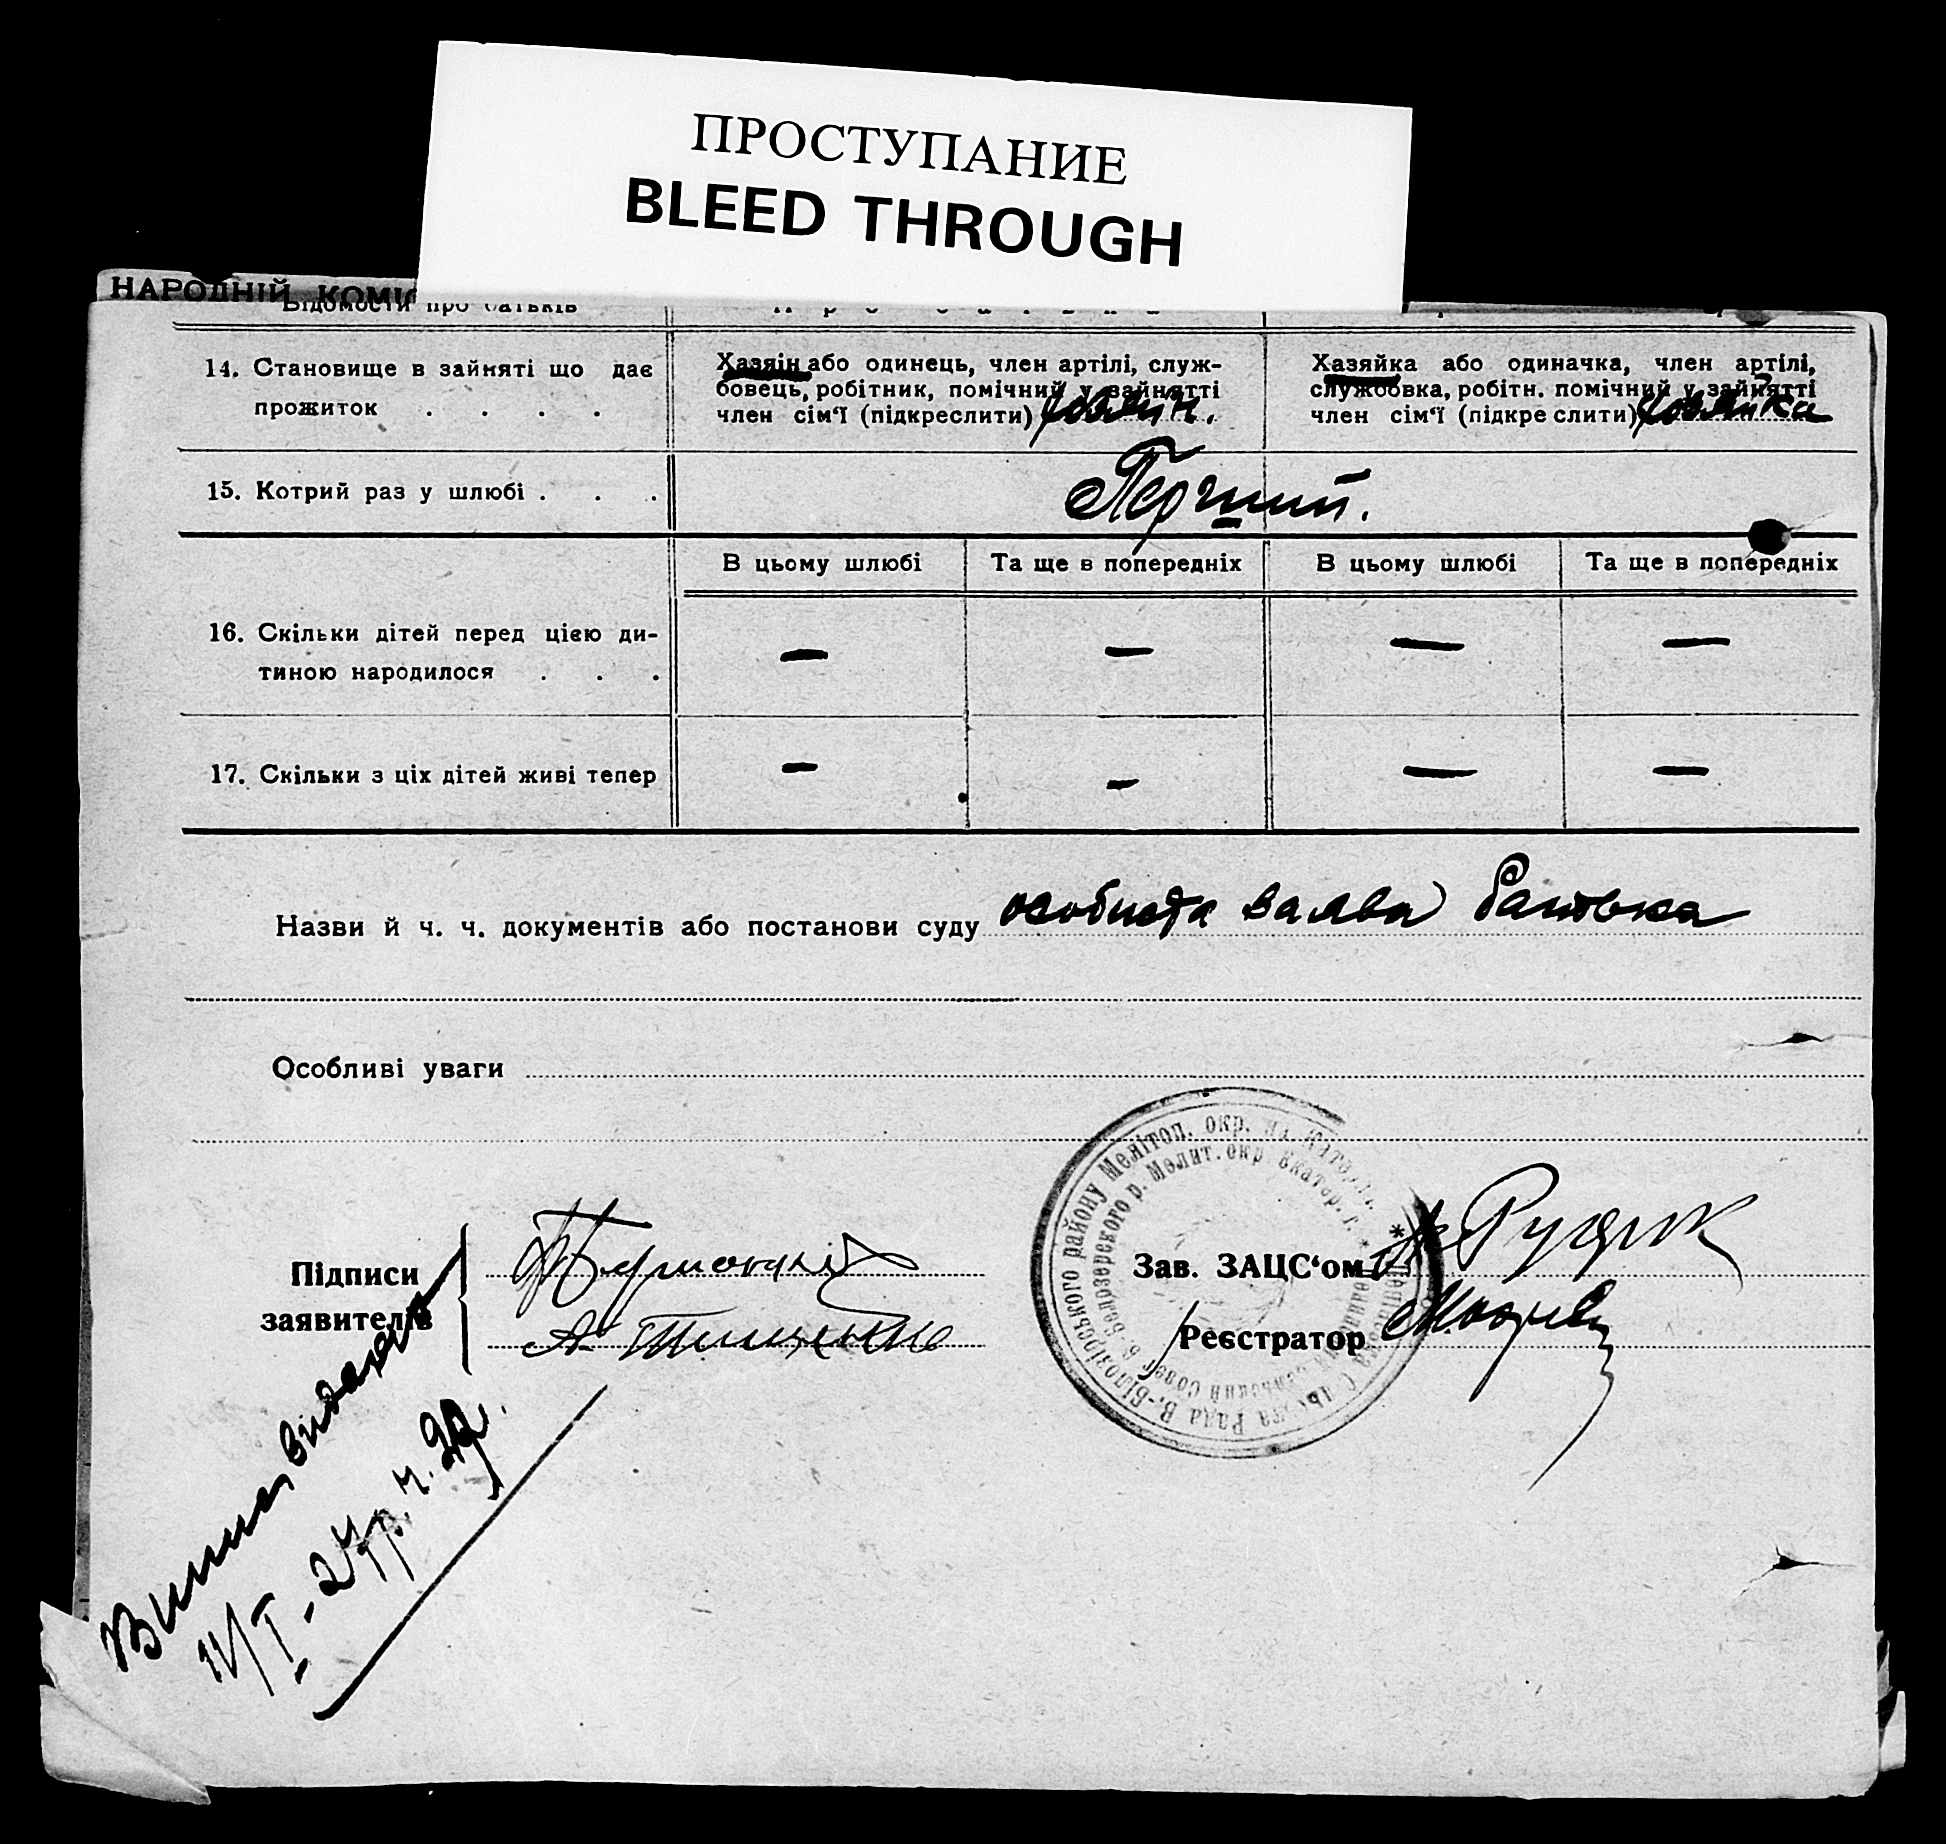 ПРОСТУПАНИЕ
BLEED THROUGH
НАРОДНІЙ КОМІ
Відомости про батьків
14. Становище в зайняті що дає
прожиток . . . .
Хазяін або одинець, член артілі, служ-
бовець, робітник, помічний у зайнятті
член сім'ї (підкреслити) хазяїн.
Хазяйка або одиначка, член артілі,
службовка, робітн. помічний у зайнятті
член сім'ї (підкре слити) хазяйка
15. Котрий раз у шлюбі . . .
Перший.
В цьому шлюбі Та ще в попередніх В цьому шлюбі Та ще в попередніх
16. Скільки дітей перед цією ди-
тиною народилося . . .
— — — —
17. Скільки з ціх дітей живі тепер
— — — —
Назви й ч. ч. документів або постанови суду особиста заява батька
Особливі уваги
Підписи
заявителів
А. Тищенко
Зав. ЗАЦС'ом А. Рудик
Реєстратор
Рада В.-Білозірського району Мелітоп. окр.
В.-Белозерского р. Мелит. окр. Екатер. г.
Випис видана
11/I-24р. ч.